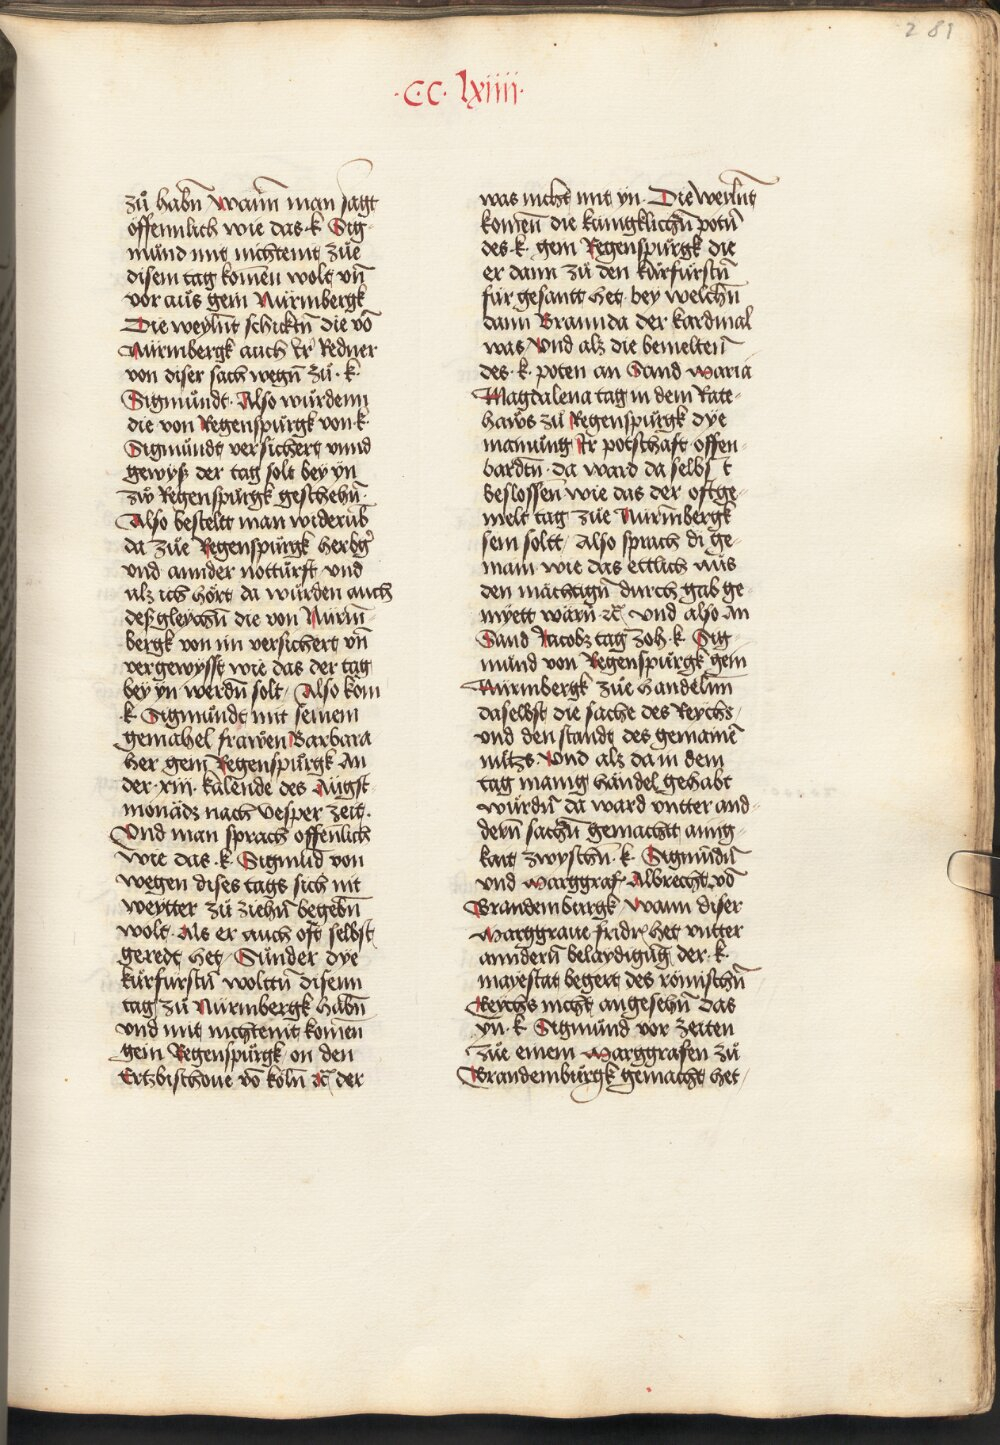 281
·CC· lxiiii·
zů habñ wañn man sagt
öffennlich wie das·k· Sig
mund mit nichtenit züe
disem tag komen wolt vñ
vor aus gem Nürmbergk
Die weylñt schicktñ die võ
Nürmbergk auch Ir Redner
von diser sach wegñ zů·k·
Sigmündt· Also würdenn
die von Regenspürgk von·k·
Sigmündt versichert vnnd
gewyß der tag solt bey yn
zů Regenspürgk geschehñ·
Also besteltt man widerüb
da züe Regenspürgk herbg̃
vnd annder notturft vnd
alz ich hört da würden auch
deß gleychñ die von Nürm̃
bergk von im versichert vñ
vergewysst wie das der tag
bey yn werdñ solt/ Also kom
·k· Sigmündt mit seinem
gemahel frawen Barbara
her gem Regenspürgk An
der·xiii· kalende des Augst
monadz nach vesper zeit·
Vnd man sprach offenlich
wie das·k· Sigmüd von
wegen dises tags sich nit
weytter zů ziehñ begebñ
wolt· Als er auch oft selbst
geredt het/ Sünder dye
kürfürstñ wolttñ disenn
tag zů Nürmbergk habñ
vnd mit nichtenit komen
gein Regenspürgk/ on den
Ertzbischoue võ köln ⁊c̃ der
was nicht mit yn· Die weylñt
komeñ die künigklichñ potñ
des·k· gem Regenspürgk die
er dann zů den kürfürstñ
für gesantt het· bey welchñ
dann Brannda der kardinal
was/ Vnd alz die bemelteñ
des·k· poten an Sand Maria
Magdalena tag in dem Rate-
haws zů Regenspürgk dye
mainüng Ir potschaft offen-
bardtñ· da ward da selbs t
beslosseñ wie das der oftge-
melt tag züe Nürmbergk
sein soltt/ Also sprach di ge-
main wie das ettlich aus
den mächtigñ durch gab ge-
myett warñ ⁊c̃· vnd also An
Sand Jacobs tag zoh·k· Sig
münd von Regenspürgk gem
Nürmbergk züe handelnn
daselbst die sache des Reychs/
vnd den stande des gemaineñ
nutzs· Vnd alz da in dem
tag manig händel gehabt
würdñ da ward vntter and-
derñ sachñ gemachtt ainig-
kait zwyschñ·k· Sigmündñ
vnd Marggraf Albrecht võ
Brandemburgk/ Wann diser
Marggraue fridrich het vntter
annderñ belaydigüg der·k·
mayestat begert des römischñ
Reychs nicht angesehñ das
yn·k· Sigmünd vor zeiten
züe einem Marggrafen zů
Brandembürgk gemacht het·